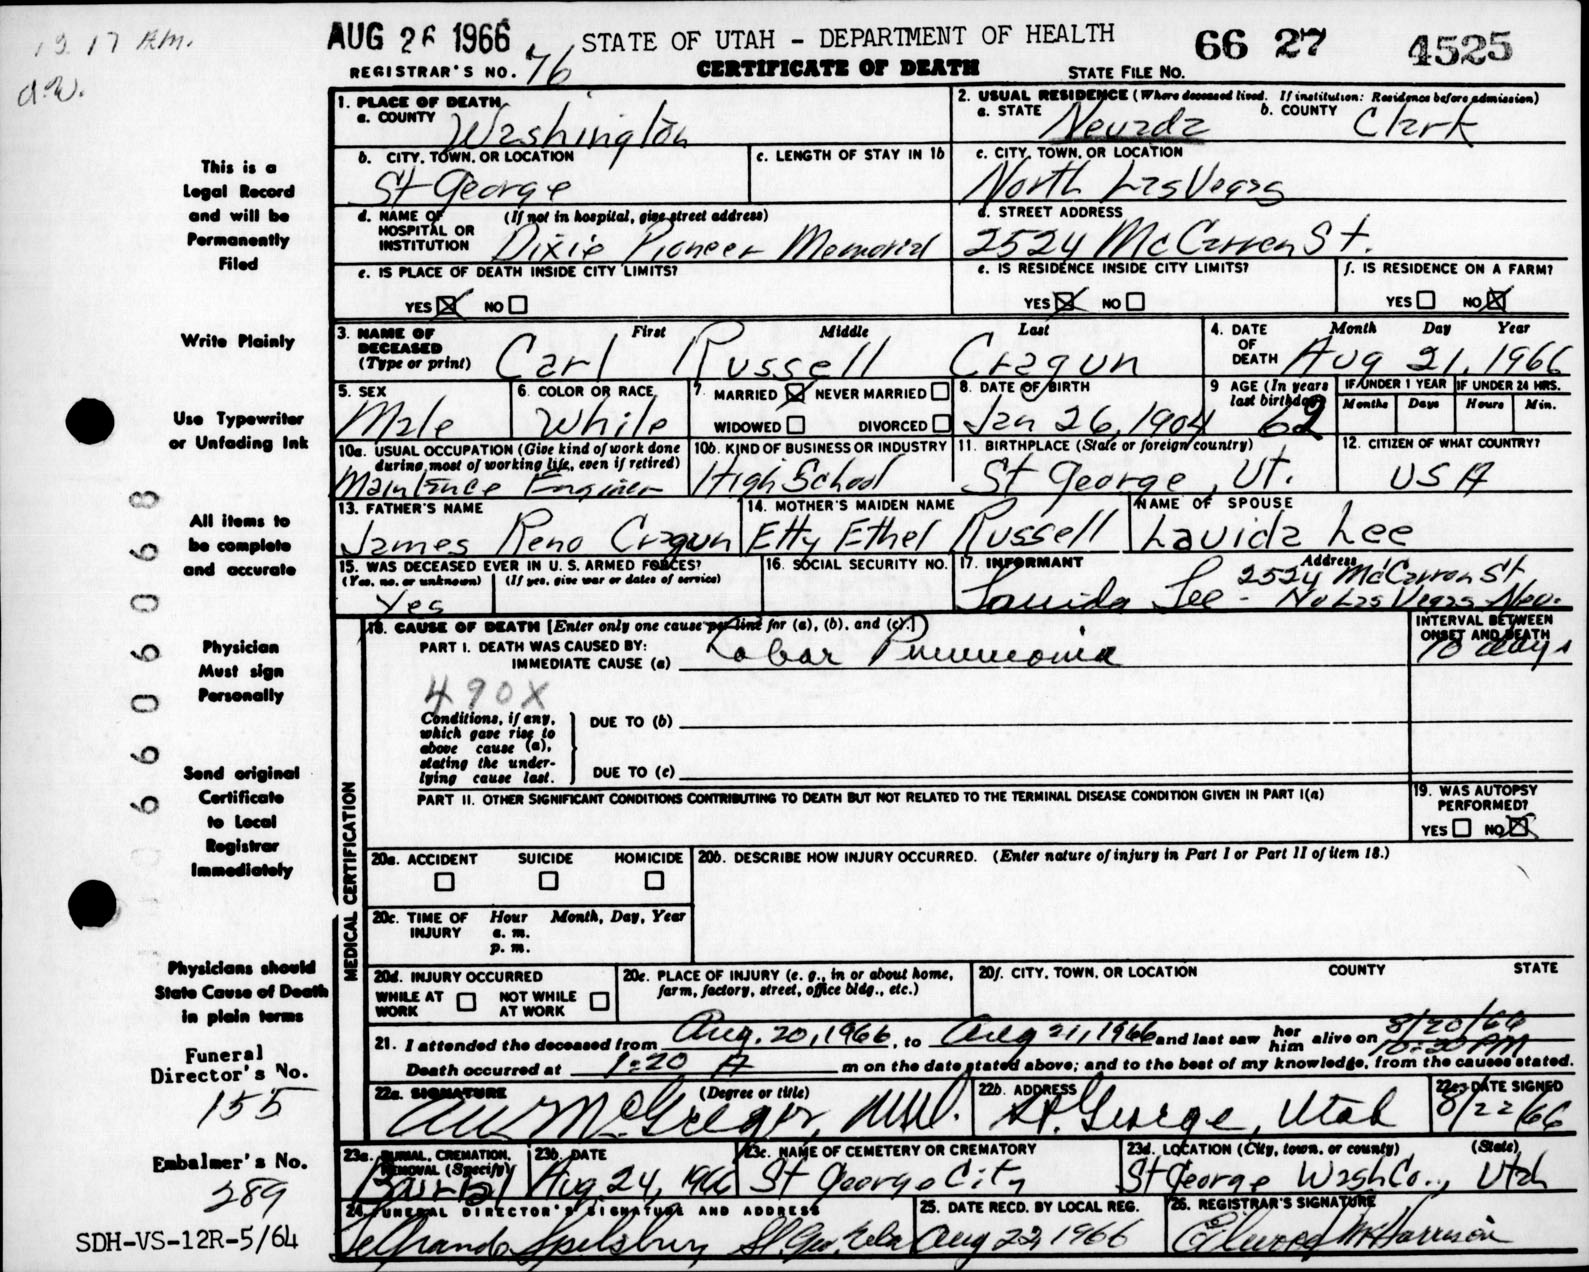 AUG 26 1966 STATE OF UTAH - DEPARTMENT OF HEALTH 66 27 4525
REGISTRAR'S NO. 76 CERTIFICATE OF DEATH STATE FILE NO.
A.M.
a.w.
This is a
Legal Record
and will be
Permanently
Filed
Write Plainly
Use Typewriter
or Unfading Ink
All items to
be complete
and accurate
Physician
Must sign
Personally
Send original
Certificate
to Local
Registrar
Immediately
Physicians should
State Cause of Death
in plain terms
Funeral
Director's No.
155
Embalmer's No.
289
SDH-VS-12R-5/64
1. PLACE OF DEATH
a. COUNTY Washington
2. USUAL RESIDENCE (Where deceased lived. If institution: Residence before admission)
a. STATE Nevada b. COUNTY Clark
b. CITY, TOWN, OR LOCATION
St George
c. LENGTH OF STAY IN 1b
c. CITY, TOWN, OR LOCATION
North Las Vegas
d. NAME OF (If not in hospital, give street address)
HOSPITAL OR
INSTITUTION Dixie Pioneer Memorial
d. STREET ADDRESS
2524 McCarren St.
e. IS PLACE OF DEATH INSIDE CITY LIMITS?
YES NO
e. IS RESIDENCE INSIDE CITY LIMITS?
YES NO
f. IS RESIDENCE ON A FARM?
YES NO
3. NAME OF DECEASED (Type or print) First Middle Last
Carl Russell Cragun
4. DATE OF DEATH Month Day Year
Aug 21, 1966
5. SEX
Male
6. COLOR OR RACE
White
7. MARRIED NEVER MARRIED
WIDOWED DIVORCED
8. DATE OF BIRTH
Jan 26, 1904
9 AGE (In years last birthday)
62
IF UNDER 1 YEAR
Months Days
IF UNDER 24 HRS.
Hours Min.
10a. USUAL OCCUPATION (Give kind of work done
during most of working life, even if retired)
Maintence Enginer
10b. KIND OF BUSINESS OR INDUSTRY
High School
11. BIRTHPLACE (State or foreign country)
St George, Ut.
12. CITIZEN OF WHAT COUNTRY?
USA
13. FATHER'S NAME
James Reno Cragun
14. MOTHER'S MAIDEN NAME
Etty Ethel Russell
NAME OF SPOUSE
Lavida Lee
15. WAS DECEASED EVER IN U.S. ARMED FORCES?
(Yes, no, or unknown) (If yes, give war or dates of service)
Yes
16. SOCIAL SECURITY NO.
17. INFORMANT Address
Lavida Lee - 2524 McCarron St
No Las Vegas Nev.
MEDICAL CERTIFICATION
18. CAUSE OF DEATH [Enter only one cause per line for (a), (b), and (c).]
PART I. DEATH WAS CAUSED BY:
IMMEDIATE CAUSE (a) Lobar Pneumonia
INTERVAL BETWEEN
ONSET AND DEATH
10 days
490X
Conditions, if any,
which gave rise to
above cause (a),
stating the under-
lying cause last.
DUE TO (b)
DUE TO (c)
PART II. OTHER SIGNIFICANT CONDITIONS CONTRIBUTING TO DEATH BUT NOT RELATED TO THE TERMINAL DISEASE CONDITION GIVEN IN PART I(a)
19. WAS AUTOPSY
PERFORMED?
YES NO
20a. ACCIDENT SUICIDE HOMICIDE
20b. DESCRIBE HOW INJURY OCCURRED. (Enter nature of injury in Part I or Part II of item 18.)
20c. TIME OF INJURY Hour Month, Day, Year
a. m.
p. m.
20d. INJURY OCCURRED
WHILE AT WORK NOT WHILE AT WORK
20e. PLACE OF INJURY (e. g., in or about home,
farm, factory, street, office bldg., etc.)
20f. CITY, TOWN, OR LOCATION COUNTY STATE
21. I attended the deceased from Aug. 20, 1966, to Aug 21, 1966 and last saw her him alive on 8/20/66 10:30 PM
Death occurred at 1:20 A m on the date stated above; and to the best of my knowledge, from the causes stated.
22a. SIGNATURE (Degree or title)
McGregor, M.D.
22b. ADDRESS
St. George, Utah
22c. DATE SIGNED
8/22/66
23a. BURIAL, CREMATION,
REMOVAL (Specify)
Burial
23b. DATE
Aug 24, 1966
23c. NAME OF CEMETERY OR CREMATORY
St George City
23d. LOCATION (City, town, or county) (State)
St George Wash Co., Utah
24. FUNERAL DIRECTOR'S SIGNATURE AND ADDRESS
Spilsbury St. Geo. Utah
25. DATE RECD. BY LOCAL REG.
Aug 22, 1966
26. REGISTRAR'S SIGNATURE
Harrison